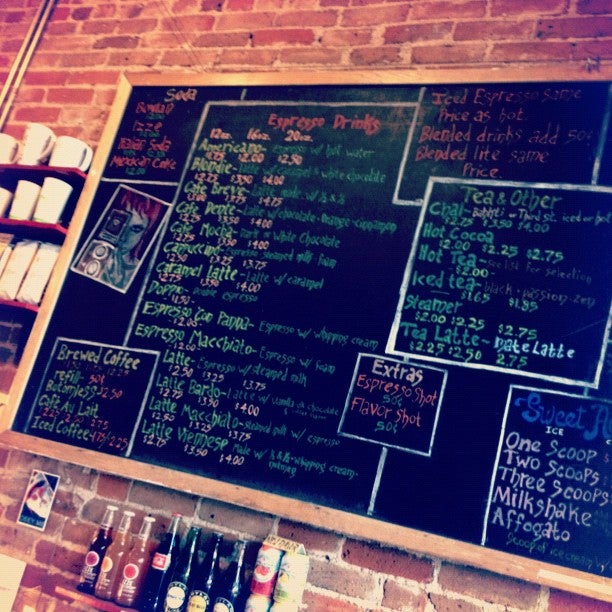 Soda
Izze
Italian Soda
Mexican Coke
$2.00
Espresso Drinks
12oz. 16oz. 20oz.
Americano- espresso w/ hot water
$1.75 $2.00 $2.50
Blondie- white chocolate
Cafe Breve- Latte made w/ ½ & ½
$3.00 $3.75 $4.75
Cafe Dente- Latte w/ chocolate-orange-cinnamon
$3.50 $4.00
Cafe Mocha- dark or white chocolate
$2.75 $3.50 $4.00
Cappuccino- espresso-steamed milk-foam
$2.50 $3.25 $3.75
Caramel Latte- Latte w/ caramel
$2.75 $3.50 $4.00
Doppio- Double espresso
$1.50
Espresso Con Panna- Espresso w/ whipping cream
$2.00
Espresso Macchiato- Espresso w/ foam
$2.00
Latte- Espresso w/ steamed milk
$2.50 $3.25 $3.75
Latte Bardo- Latte w/ vanilla & chocolate
$3.50 $4.00
Latte Macchiato- Steamed milk w/ espresso
$2.50 $3.25 $3.75
Latte Viennese- Made w/ ½&½-whipping cream-
nutmeg
$2.75 $3.50 $4.00
Iced Espresso same
Price as hot
Blended drinks add 50¢
Blended lite same
Price
Tea & Other
Chai- Bhakti or Third St. iced or hot
$3.50 $4.00
Hot Cocoa
$2.00 $2.25 $2.75
Hot Tea- see list for selection
$2.00
Iced tea- black-passion-zen
$1.65 $1.85
Steamer
$2.00 $2.25 $2.75
Tea Latte- Mate Latte
$2.25 $2.50 2.75
Brewed Coffee
refill- 50¢
Bottomless- $2.50
Café Au Lait
2.25 2.75
Iced Coffee- 1.75/2.25
Extras
Espresso Shot
50¢
Flavor Shot
50¢
Sweet
ICE
One Scoop $
Two Scoops
Three Scoops
Milkshake
Affogato
Scoop of ice cream w/